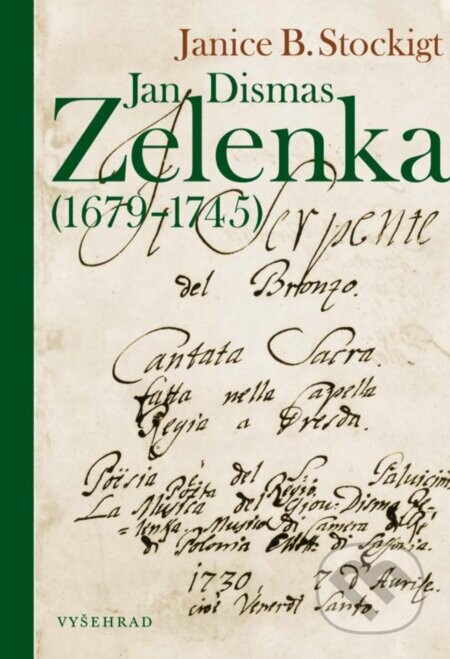 Janice B. Stockigt
Jan Dismas
Zelenka
(1679–1745)
Il Serpente
del Bronzo.
Cantata Sacra.
fatta nella Capella
Regia a Dresda.
Poësia è del S.
Poëta del Regio.
La Musica del Giov: Disma Ze=
=lenka Musico di Camera
di Polonia Elett: di
1730. 7 d'Aprile.
cioè Venerdi Santo.
VYŠEHRAD